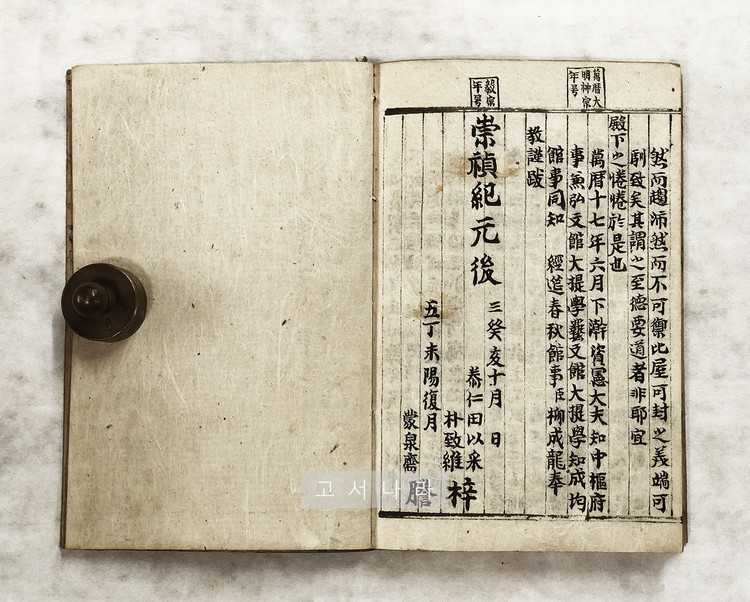 萬曆大
明神宗
年号
毅宗
年号
然而趨沛然而不可禦比屋可封之義端可
馴致矣其謂之至德要道者非耶宜
殿下之惓惓於是也
萬曆十七年六月下澣資憲大夫知中樞府
事兼弘文館大提學藝文館大提學知成均
館事同知 經筵春秋館事臣柳成龍奉
教謹跋
崇禎紀元後三癸亥十月 日
泰仁田以采
朴致維 梓
五丁未陽復月
蒙泉齋 謄
고서나라